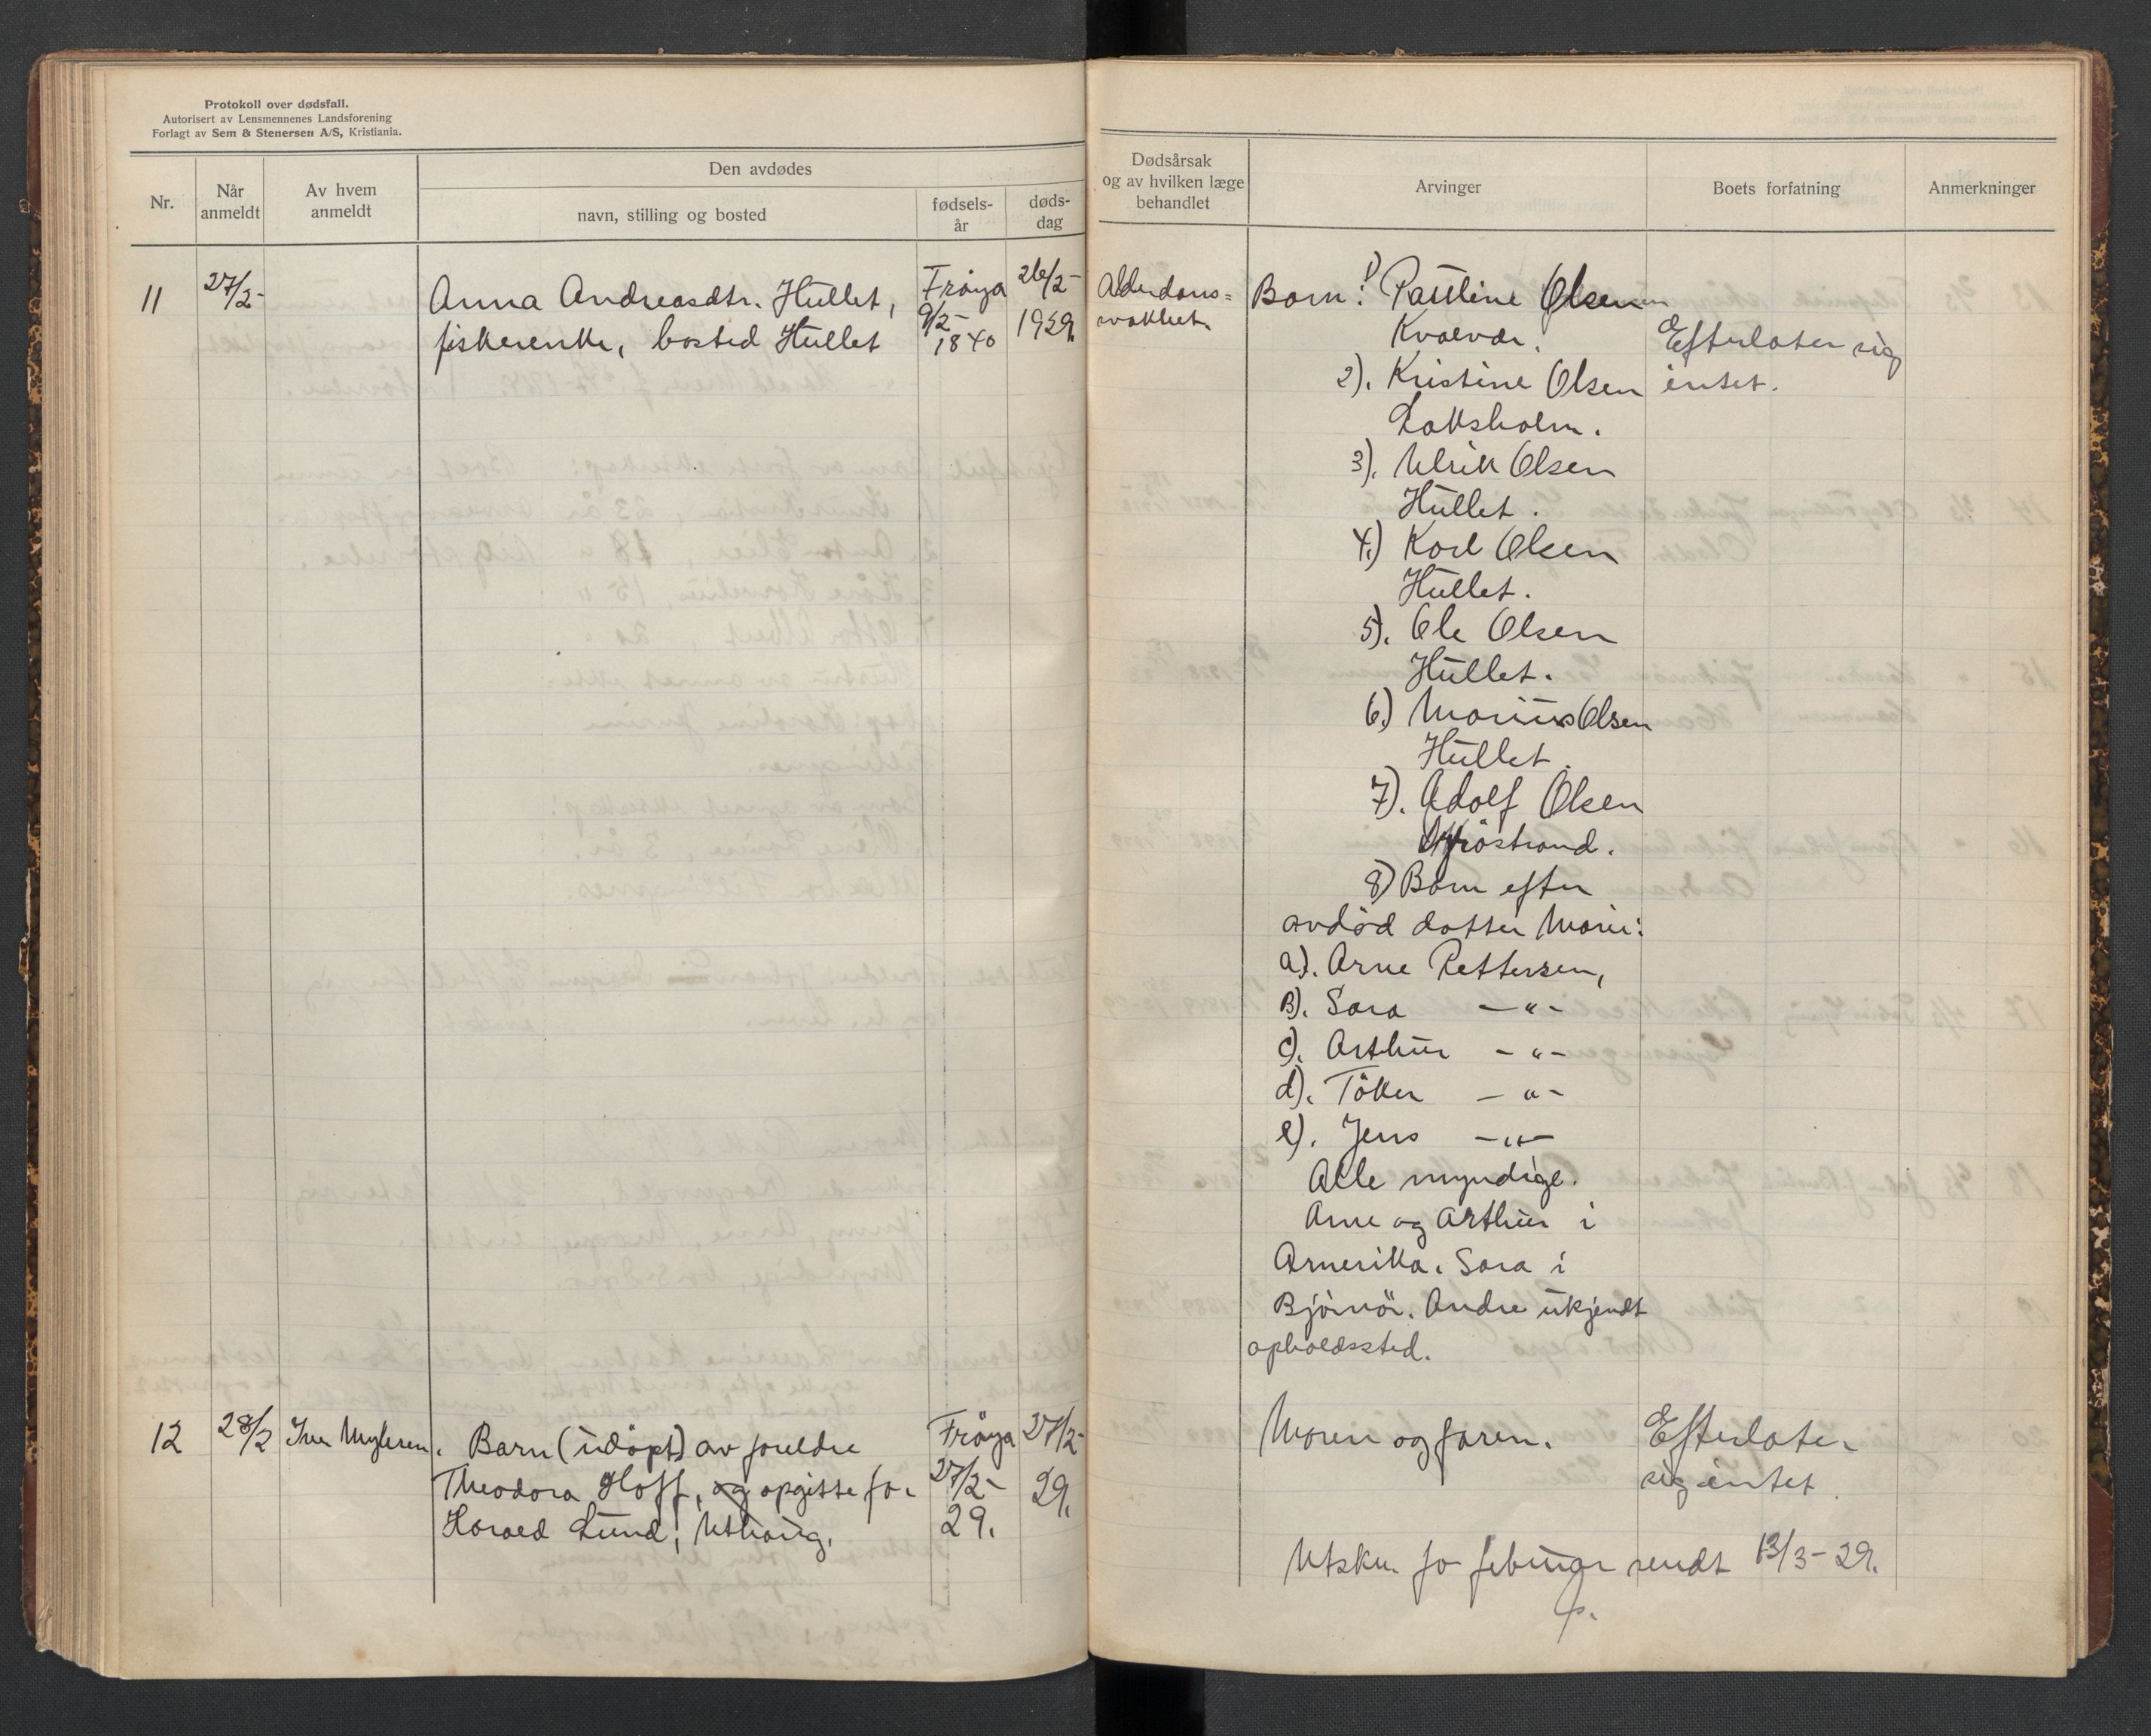 Protokoll over dødsfall.
Autorisert av Lensmennenes Landsforening
Forlagt av Sem & Stenersen A/S, Kristiania.
Nr.
Når anmeldt
Av hvem anmeldt
Den avdødes
navn, stilling og bosted
fødsels-
år
døds-
dag
Dødsårsak
og av hvilken læge
behandlet
Arvinger
Boets forfatning
Anmerkninger
11
27/2-
Anna Andreasdtr. Hullet,
fiskerenke, bosted Hullet
Frøya
9/2-
1840
26/2-
1929.
Alderdoms=
svakhet.
Barn: 1) Pauline Olsen
Kvalvær.
2). Kristine Olsen
Laksholm.
3). Ulrik Olsen
Hullet.
4.) Karl Olsen
Hullet.
5). Ole Olsen
Hullet.
6.) Marius Olsen
Hullet.
7). Adolf Olsen
8) Barn efter
avdød datter Marie:
a). Arne Pettersen,
B). Sara -"-
c). Arthur -"-
d). Tøker -"-
e). Jens -"-
Alle myndige.
Arne og Arthur i
Amerika. Sara i
Bjørnør. Andre ukjendt
opholdssted.
Efterlater sig
intet.
12
28/2
Iver Myhren.
Barn (udøpt) av foreldre
Theodora Hoff, og opgitte far
Harald Lund, Uthaug.
Frøya
27/2-
29.
27/2-
29.
Moren og faren.
Efterlater
sig intet.
Utskr. for februar sendt 13/3-29.